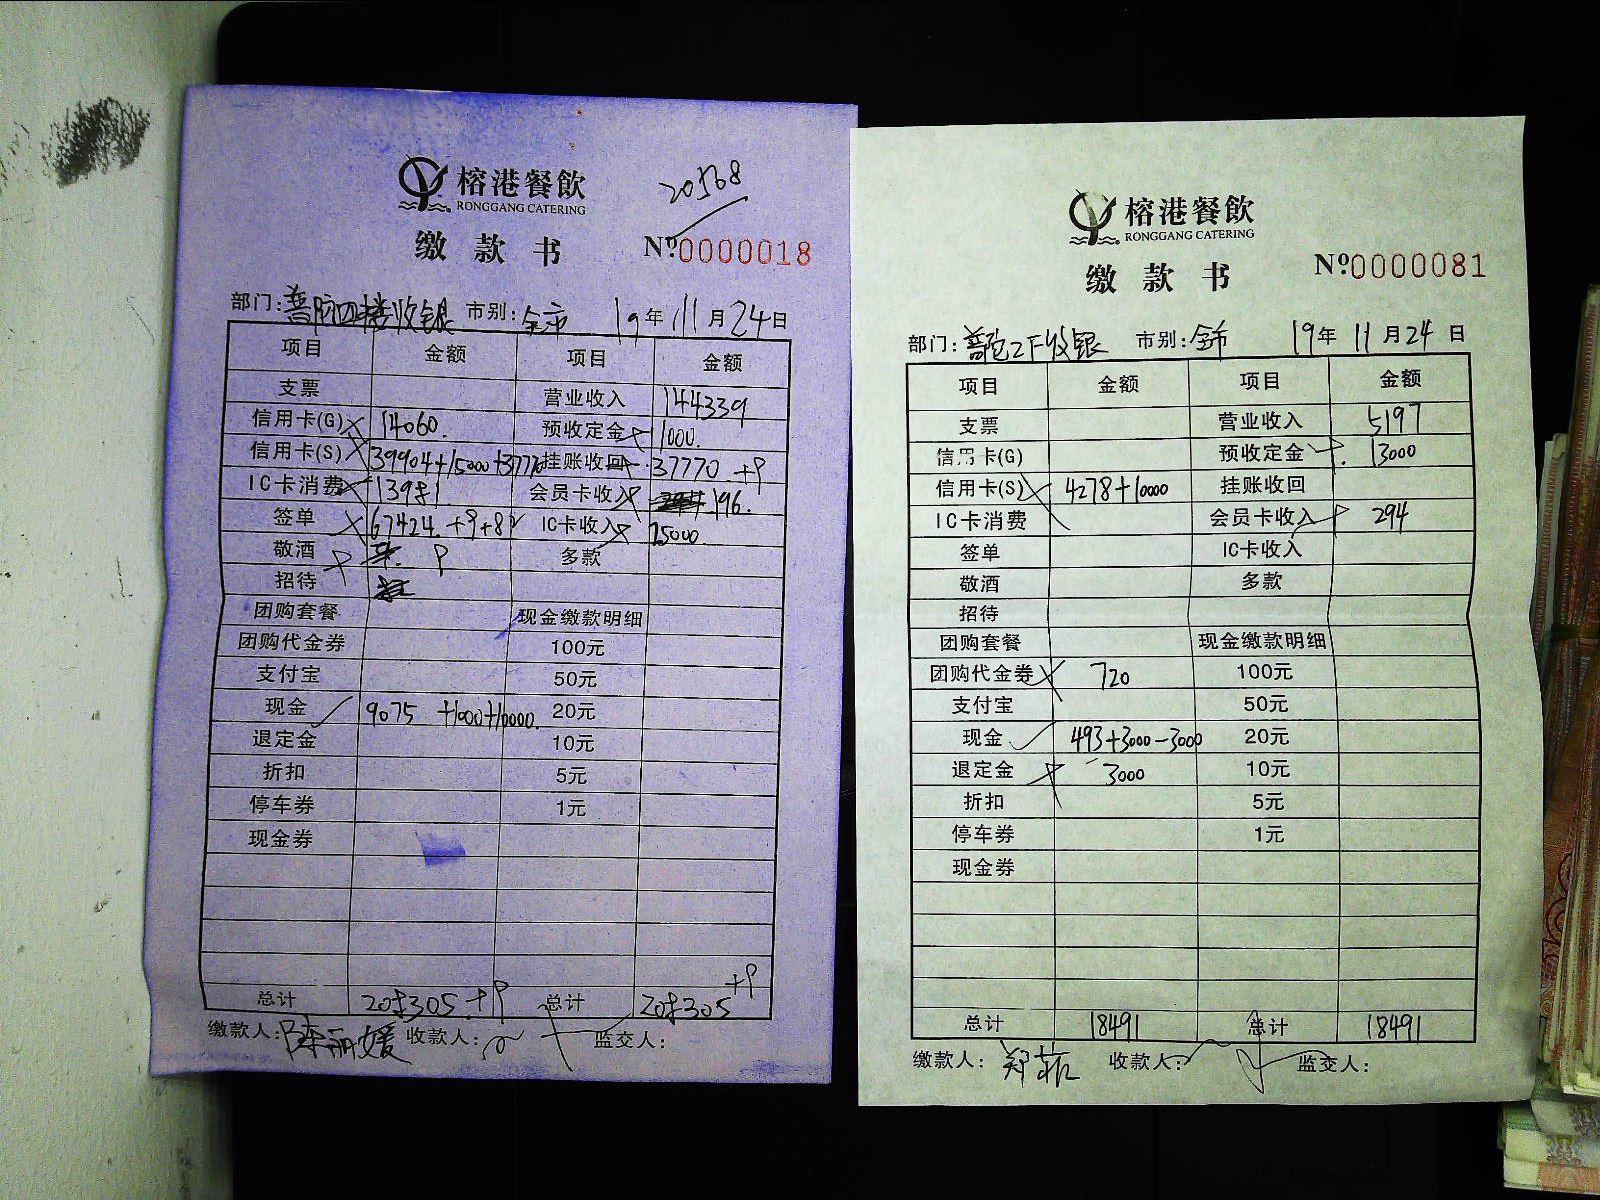 榕港餐飲
RONGGANG CATERING
20568
缴款书
Nº0000018
部门:普陀四楼收银 市别:全市 19年11月24日
项目 金额 项目 金额
支票 营业收入 144339
信用卡(G) 14060. 预收定金 1000.
信用卡(S) 39904+15000+37770 挂账收回 37770 +9
IC卡消费 会员卡收入 196.
签单 67424.+9+82 IC卡收入
敬酒 9 多款
招待
团购套餐 现金缴款明细
团购代金券 100元
支付宝 50元
现金 9075 +1000+10000. 20元
退定金 10元
折扣 5元
停车券 1元
现金券
总计 208305.+9 总计 208305 +9
缴款人:陈丽媛 收款人: 监交人:
榕港餐飲
RONGGANG CATERING
缴款书
Nº0000081
部门:普陀2F收银 市别:全市 19年11月24日
项目 金额 项目 金额
支票 营业收入 5197
信用卡(G) 预收定金 13000
信用卡(S) 4278+10000 挂账收回
IC卡消费 会员卡收入 294
签单 IC卡收入
敬酒 多款
招待
团购套餐 现金缴款明细
团购代金券 720 100元
支付宝 50元
现金 493+3000-3000 20元
退定金 3000 10元
折扣 5元
停车券 1元
现金券
总计 18491 总计 18491
缴款人:郑菲 收款人: 监交人: